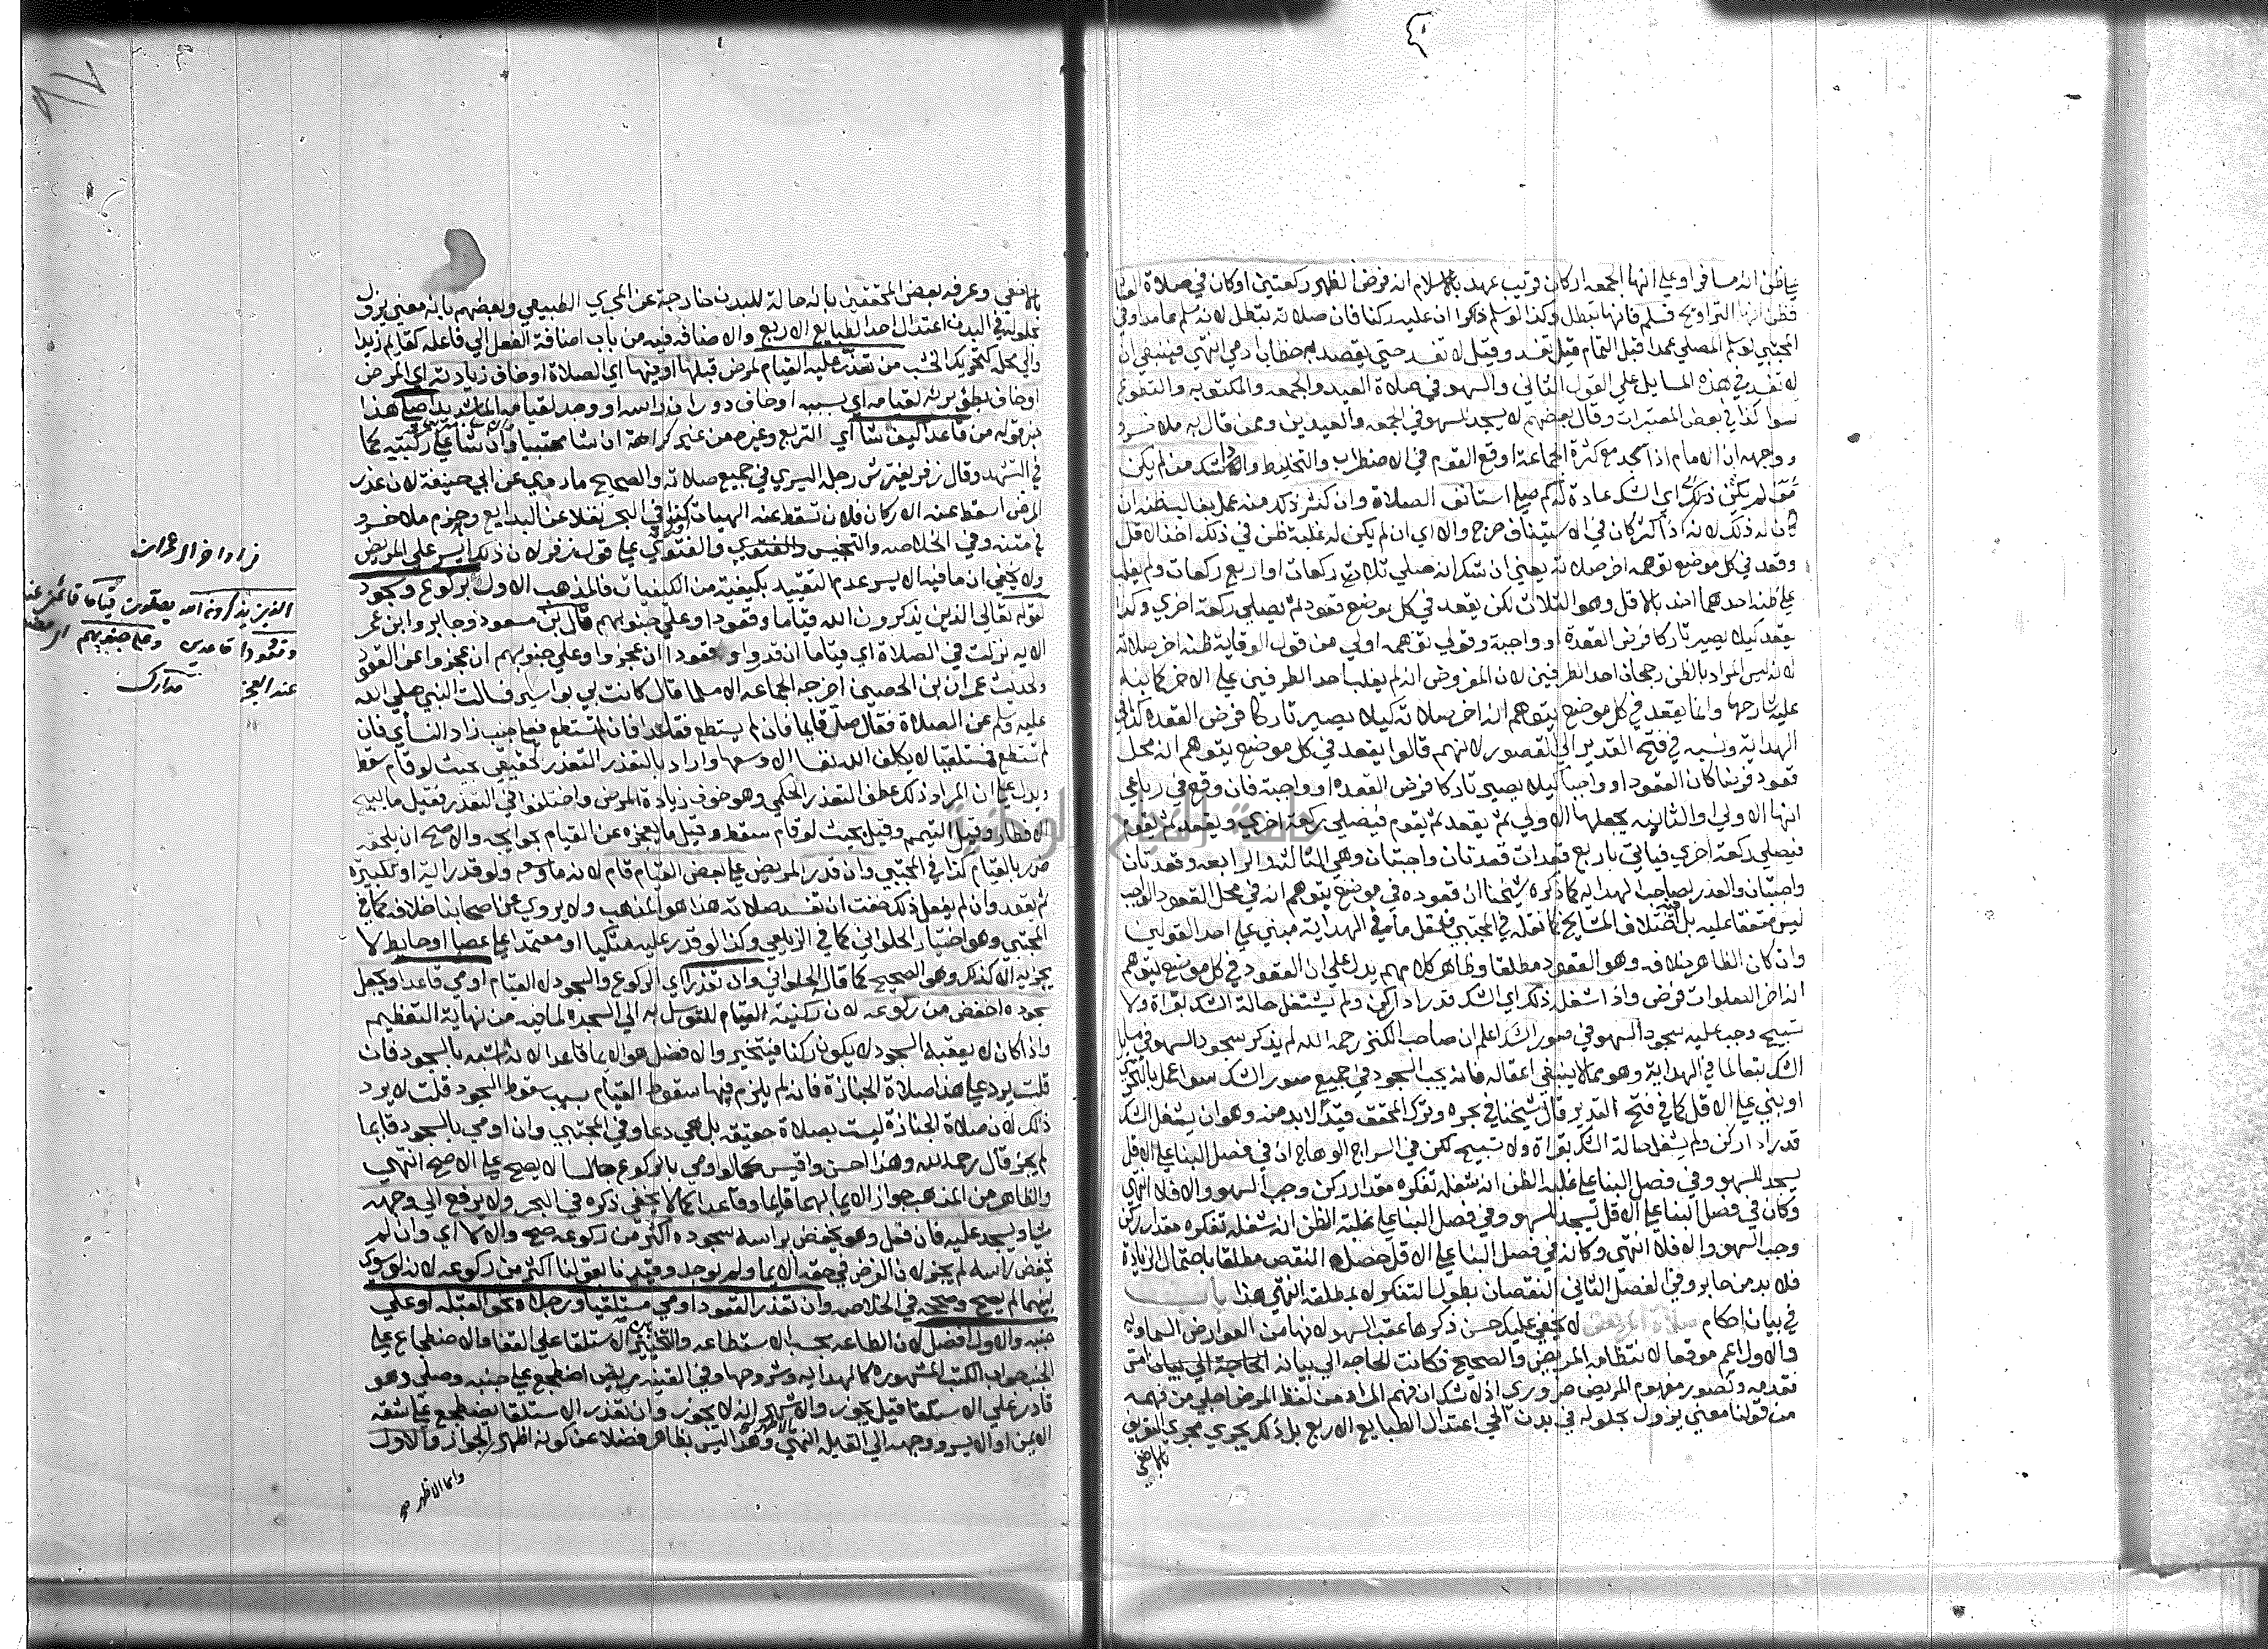 على ظن انه مسافر او على انها الجمعة او كان قريب عهد بالاسلام انه فرض الظهر ركعتين او كان في صلاة العشا
فظن انها التراويح فسلم فانها تبطل وكذا لو سلم ذاكرا ان عليه ركنا فان صلاته تبطل لانه سلم عامدا وفي
المجتبي لو سلم المصلي عمدا قبل التمام قيل تفسد وقيل لا تفسد حتي يقصد به خطاب ادمي انتهي فينبغي ان
لا تفسد في هذه المسايل علي القول الثاني والسهو في صلاة العيد والجمعه والمكتوبه والتطوع
سوا كذا في بعض المعتبرات وقال بعضهم لا يسجد للسهو في الجمعه والعيدين وممن قال به ملا خسرو
ووجهه ان الامام اذا سجد مع كثرة الجماعة اوقع القوم في الاضطراب والتخليط وان شك من لم يكن
ذلك اي الشك عادة له كم صلي استانف الصلاة وان كثر ذلك منه عمل بغالب ظنه ان
كان له ذلك لانه اذا كثر كان في الاستيناف حرج والا اي ان لم يكن له غلبة ظن في ذلك اخذ الاقل
وقعد في كل موضع توهمه اخر صلاته يعني ان شك انه صلي ثلاث ركعات او اربع ركعات ولم يغلب
علي ظنه احدهما اخذ بالاقل وهو الثلاث لكن يقعد في كل موضع قعود ثم يصلي ركعة اخري وكذا
يقعد كيلا يصير تاركا فرض القعدة او واجبة وقولي توهمه اولي من قول الوقاية ظنه اخر صلاته
لانه ليس المراد بالظن رجحان احد الطرفين لان المفروض انه لم يغلب احد الطرفين علي الاخر كما نبه
عليه شارحها وانما يقعد في كل موضع يتوهم انه اخر صلاته كيلا يصير تاركا فرض القعدة كذا في
الهداية ونسبه في فتح القدير الي القصور لانهم قالوا يقعد في كل موضع يتوهم انه محل
قعود فرضا كان القعود او واجبا كيلا يصير تاركا فرض القعده او واجبة فان وقع في رباعي
انها الاولي او الثانيه يجعلها الاولي ثم يقعد ثم يقوم فيصلي ركعة اخري ويقعد ثم يقوم
فيصلي ركعة اخري فياتي باربع قعدات قعدتان واجبتان وهي الثالثة والرابعه وقعدتان
واجبتان والعذر لصاحب الهدايه كما ذكره شيخنا ان قعوده في موضع يتوهم انه في محل القعود الواجب
ليس متفقا عليه بل فيه اختلاف المشايخ كما نقله في المجتبي فلعل ما في الهداية مبني علي احد القولين
وان كان الظاهر خلافه وهو القعود مطلقا وظاهر كلامهم يدل علي ان القعود في كل موضع يتوهم
انه اخر الصلوات فرض واذا اشغل ذلك اي الشك قدر اداركن ولم يشتغل حالة الشك بقراة ولا
تسبيح وجب عليه سجود السهو في صور الشك اعلم ان صاحب الكنز رحمه الله لم يذكر سجود السهو في مسايل
الشك تبعا لما في الهداية وهو مما لا ينبغي اغفاله فانه يجب السجود في جميع صور الشك سوا عمل بالتحري
او بني علي الاقل كما في فتح القدير قال شيخنا في بحره وترك المحقق قيدا لا بد منه وهو ان يشغل الشك
قدر ادا ركن ولم يشغل حالة الشك بقراة ولا تسبيح لكن في السراج الوهاج ان في فصل البنا علي الاقل
يسجد للسهو وفي فصل البنا علي غلبة الظن ان شغله تفكره مقدار ركن وجب السهو والا فلا انتهي
وكان في فصل البنا علي الاقل تسجد للسهو وفي فصل البنا علي غلبة الظن ان شغله تفكره مقدار ركن
وجب السهو والا فلا انتهي وكانه في فصل البنا علي الاقل حصل النقص مطلقا باحتمال الزيادة
فلا بد من جابر وفي الفصل الثاني النقصان بطول التفكر لا بمطلقه انتهي هذا بابـــ
في بيان احكام صلاة المريض لا يخفي عليك حسن ذكرها عقب السهو لانها من العوارض السماويه
والاول اعم موقعا لانتظامه المريض والصحيح فكانت الحاجه الي بيانه الحاجة الي بيان امس
فقدمه وتصور مفهوم المريض ضروري اذ لا شك ان فهم المراد من لفظ المرض اجلي من فهمه
من قولنا معني يزول بحلوله في بدن الحي اعتدال الطبايع الاربع بل ذلك يجري مجري التعريف
بالاخفي
بالاخفي وعرفه بعض المحققين بانه حالة للبدن خارجة عن المجري الطبيعي وبعضهم بانه معني يزول
بحلوله في البدن اعتدال احد الطبايع الاربع والاضافه فيه من باب اضافة الفعل الي فاعله كقيام زيد
والي محله كتحريك الخشب من تعذر عليه القيام لمرض قبلها او فيها اي الصلاة او خاف زيادته اي المرض
او خاف بطؤ برئه لقيامه اي بسببه او خاف دوران راسه او وجد لقيامه الما شديدا صلي هذا
خبر قوله من قاعدا كيف شا اي التربع وغيره من غير كراهة ان شا محتبيا وان شا علي ركبتيه كما
في التشهد وقال زفر يفترش رجله اليسري في جميع صلاته والصحيح ما روي عن ابي حنيفة لان عذر
المرض اسقط عنه الاركان فلان تسقط عنه الهيات كذا في البحر نقلا عن البدايع وجزم ملا خسرو
في متنه وفي الخلاصه والتجنيس والفتوي علي قول زفر لان ذلك ايسر علي المريض
ولا يخفي ان ما فيه الايسر عدم التقييد بكيفية من الكيفيات فالمذهب الاول بركوع وسجود
لقوله تعالي الذين يذكرون الله قياما وقعودا وعلي جنوبهم قال بن مسعود وجابر وابن عمر
الايه نزلت في الصلاة اي قياما ان قدروا وقعودا ان عجزوا وعلي جنوبهم ان عجزوا عن القعود
ولحديث عمران بن الحصين اخرجه الجماعه الا مسلما قال كانت بي بواسير فسالت النبي صلي الله
عليه وسلم عن الصلاة فقال صل قايما فان لم يستطع فقاعدا فان لم تستطع فعلي جنب زاد النسأي فان
لم تستطع فمستلقيا لا يكلف الله نفسا الا وسعها واراد بالتعذر التعذر الحقيقي بحيث لو قام سقط
ويدل علي ان المراد ذلك عطف التعذر الحكمي وهو خوف زيادة المرض واختلفوا في التعذر فقيل ما يبيح
الافطار وقيل التيمم وقيل بحيث لو قام سقط وقيل ما يعجزه عن القيام بحوايجه والاصح ان يلحقه
ضرر بالقيام كذا في المجتبي وان قدر المريض علي بعض القيام قام لانه ماوسعه ولو قدر اية او تكبيرة
ثم يقعد وان لم يفعل ذلك خفت ان تفسد صلاته هذا هو المذهب ولا يروي عن اصحابنا خلافه كما في
المجتبي وهو اختيار الحلواني كما في الزيلعي وكذا لو قدر عليه متكيا او معتمدا علي عصا او حايط لا
يجزيه الا كذلك وهو الصحيح كما قال الحلواني وان تعذر اي الركوع والسجود لا القيام اومي قاعدا ويجعل
سجوده اخفض من ركوعه لان ركنية القيام للتوسل به الي السجده لما فيه من نهاية التعظيم
واذا كان لا يعقبه السجود لا يكون ركنا فيتخير والافضل هو الايما قاعدا لانه اشبه بالسجود فان
قلت يرد علي هذا صلاة الجنازة فانه لم يلزم فيها سقوط القيام بسبب سقوط السجود قلت لا يرد
ذلك لان صلاة الجنازة ليست بصلاة حقيقه بل هي دعا وفي المجتبي وان اومي بالسجود قايما
لم يجز قال رحمه الله وهذا احسن واقيس كما لو اومي بالركوع جالسا لا يصح علي الاصح انتهي
والظاهر من المذهب جواز الايما لهما قايما وقاعدا كما لا يخفي ذكره في البحر ولا يرفع الي وجهه
شيا ويسجد عليه فان فعل وهو يخفض براسه لسجوده اكثر من ركوعه صح والا لا اي وان لم
يخفض راسه لم يجز لان الفرض في حقه الايما ولم يوجد وقيدنا بقولنا اكثر من ركوعه لانه لو سوي
بينهما لم يصح وصححه في الخلاصه وان تعذر القعود اومي مستلقيا ورجلاه نحو القبله او علي
جنبه والاول افضل لان الطاعه بحسب الاستطاعه والتخيير بين الاستلقا علي القفا والاضطجاع علي
الجنب جواب الكتب المشهوره كالهدايه وشروحها وفي القنيه مريض اضطجع علي جنبه وصلي وهو
قادر علي الاستلقا قيل يجوز والاظهر انه لا يجوز وان تعذر الاستلقا يضطجع علي شقه
الايمن او الايسر ووجهه الي القبله انتهي وهذا ليس بظاهر فضلا عن كونه اظهر الجواز والاول
وانما الاظهر صح
الذين يذكرون الله يصلون قياما قائمين عند
وقعودا قاعدين وعلي جنوبهم
عند العجز مدارك